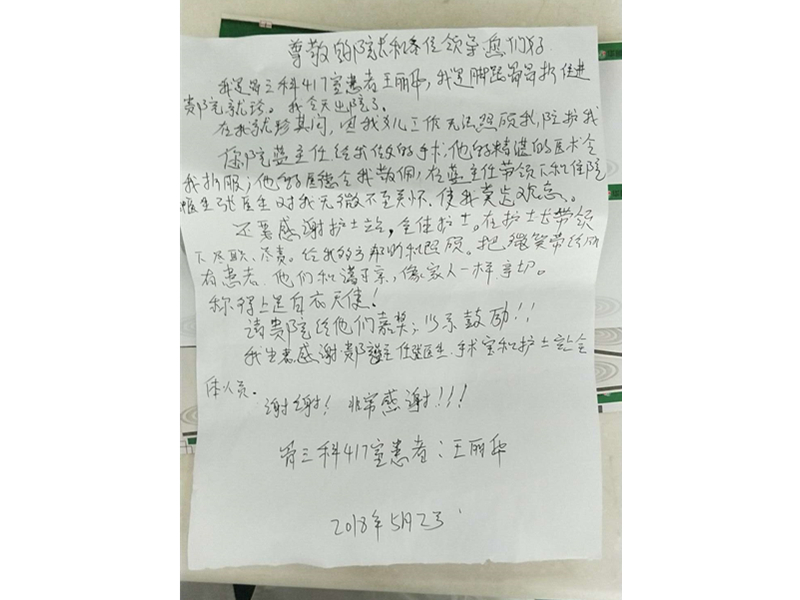 尊敬的院长和各位领导您们好
我是骨三科417室患者王丽华,我是脚踝骨骨折住进
贵院就珍。我今天出院了。
在我就珍其间,因我女儿工作无法照顾我,院护我
您院蓝主任给我做的手术,他的精湛的医术令
我折服;他的医德令我敬佩,在蓝主任带领下和住院
医生张医生对我无微不至关怀。使我莫齿难忘。
还要感谢护士站,全体护士。在护士长带领
下尽职、尽责。给我的方帮助和照顾。把微笑带给所
有患者.他们和谒可亲,像家人一样亲切。
称得上是白衣天使!
请贵院给他们嘉奖;以示鼓励!!
我出院感谢贵院蓝主任张医生.手术室和护士站全
体人员.
谢谢!非常感谢!!!
骨三科417室患者:王丽华
2018年5月2号